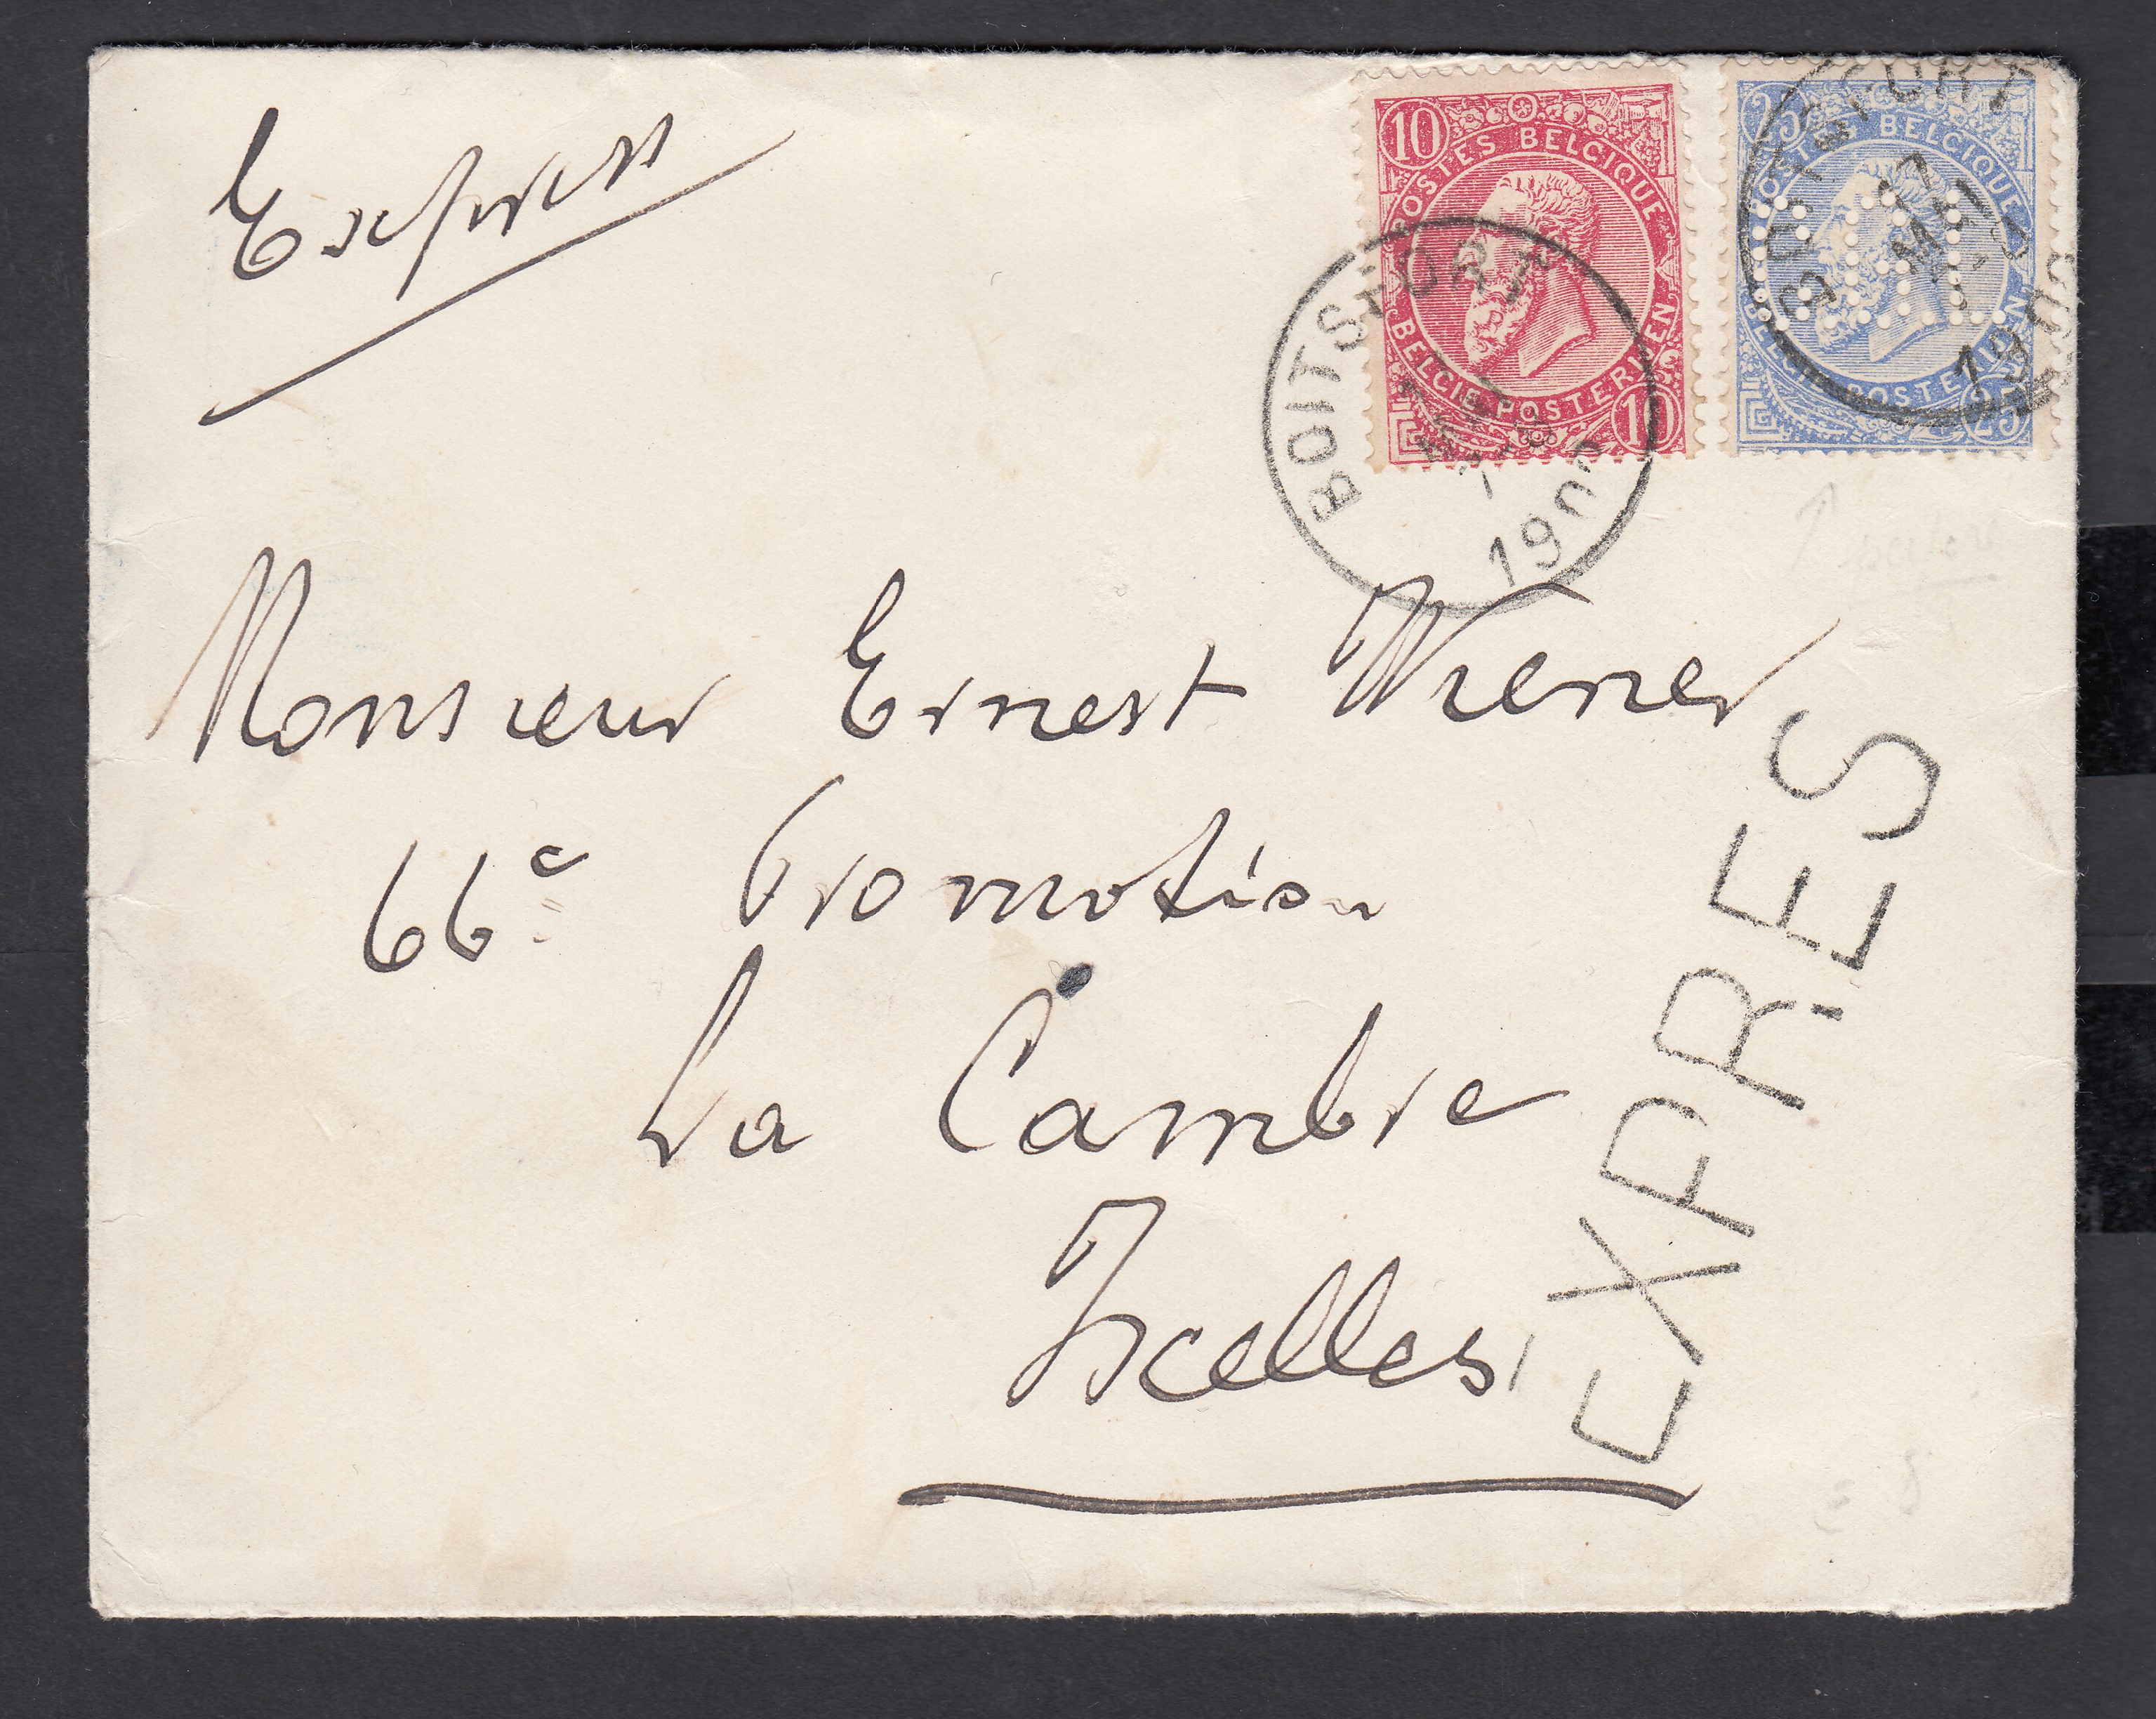 Express
10
POSTES BELGIQUE
BELGIE POSTERIJEN
10
25
POSTES BELGIQUE
BELGIE POSTERIJEN
25
BOITSFORT
1900
BOITSFORT
17
MAI
1900
Monsieur Ernest Wiener
66e Promotion
La Cambre
Ixelles
EXPRES